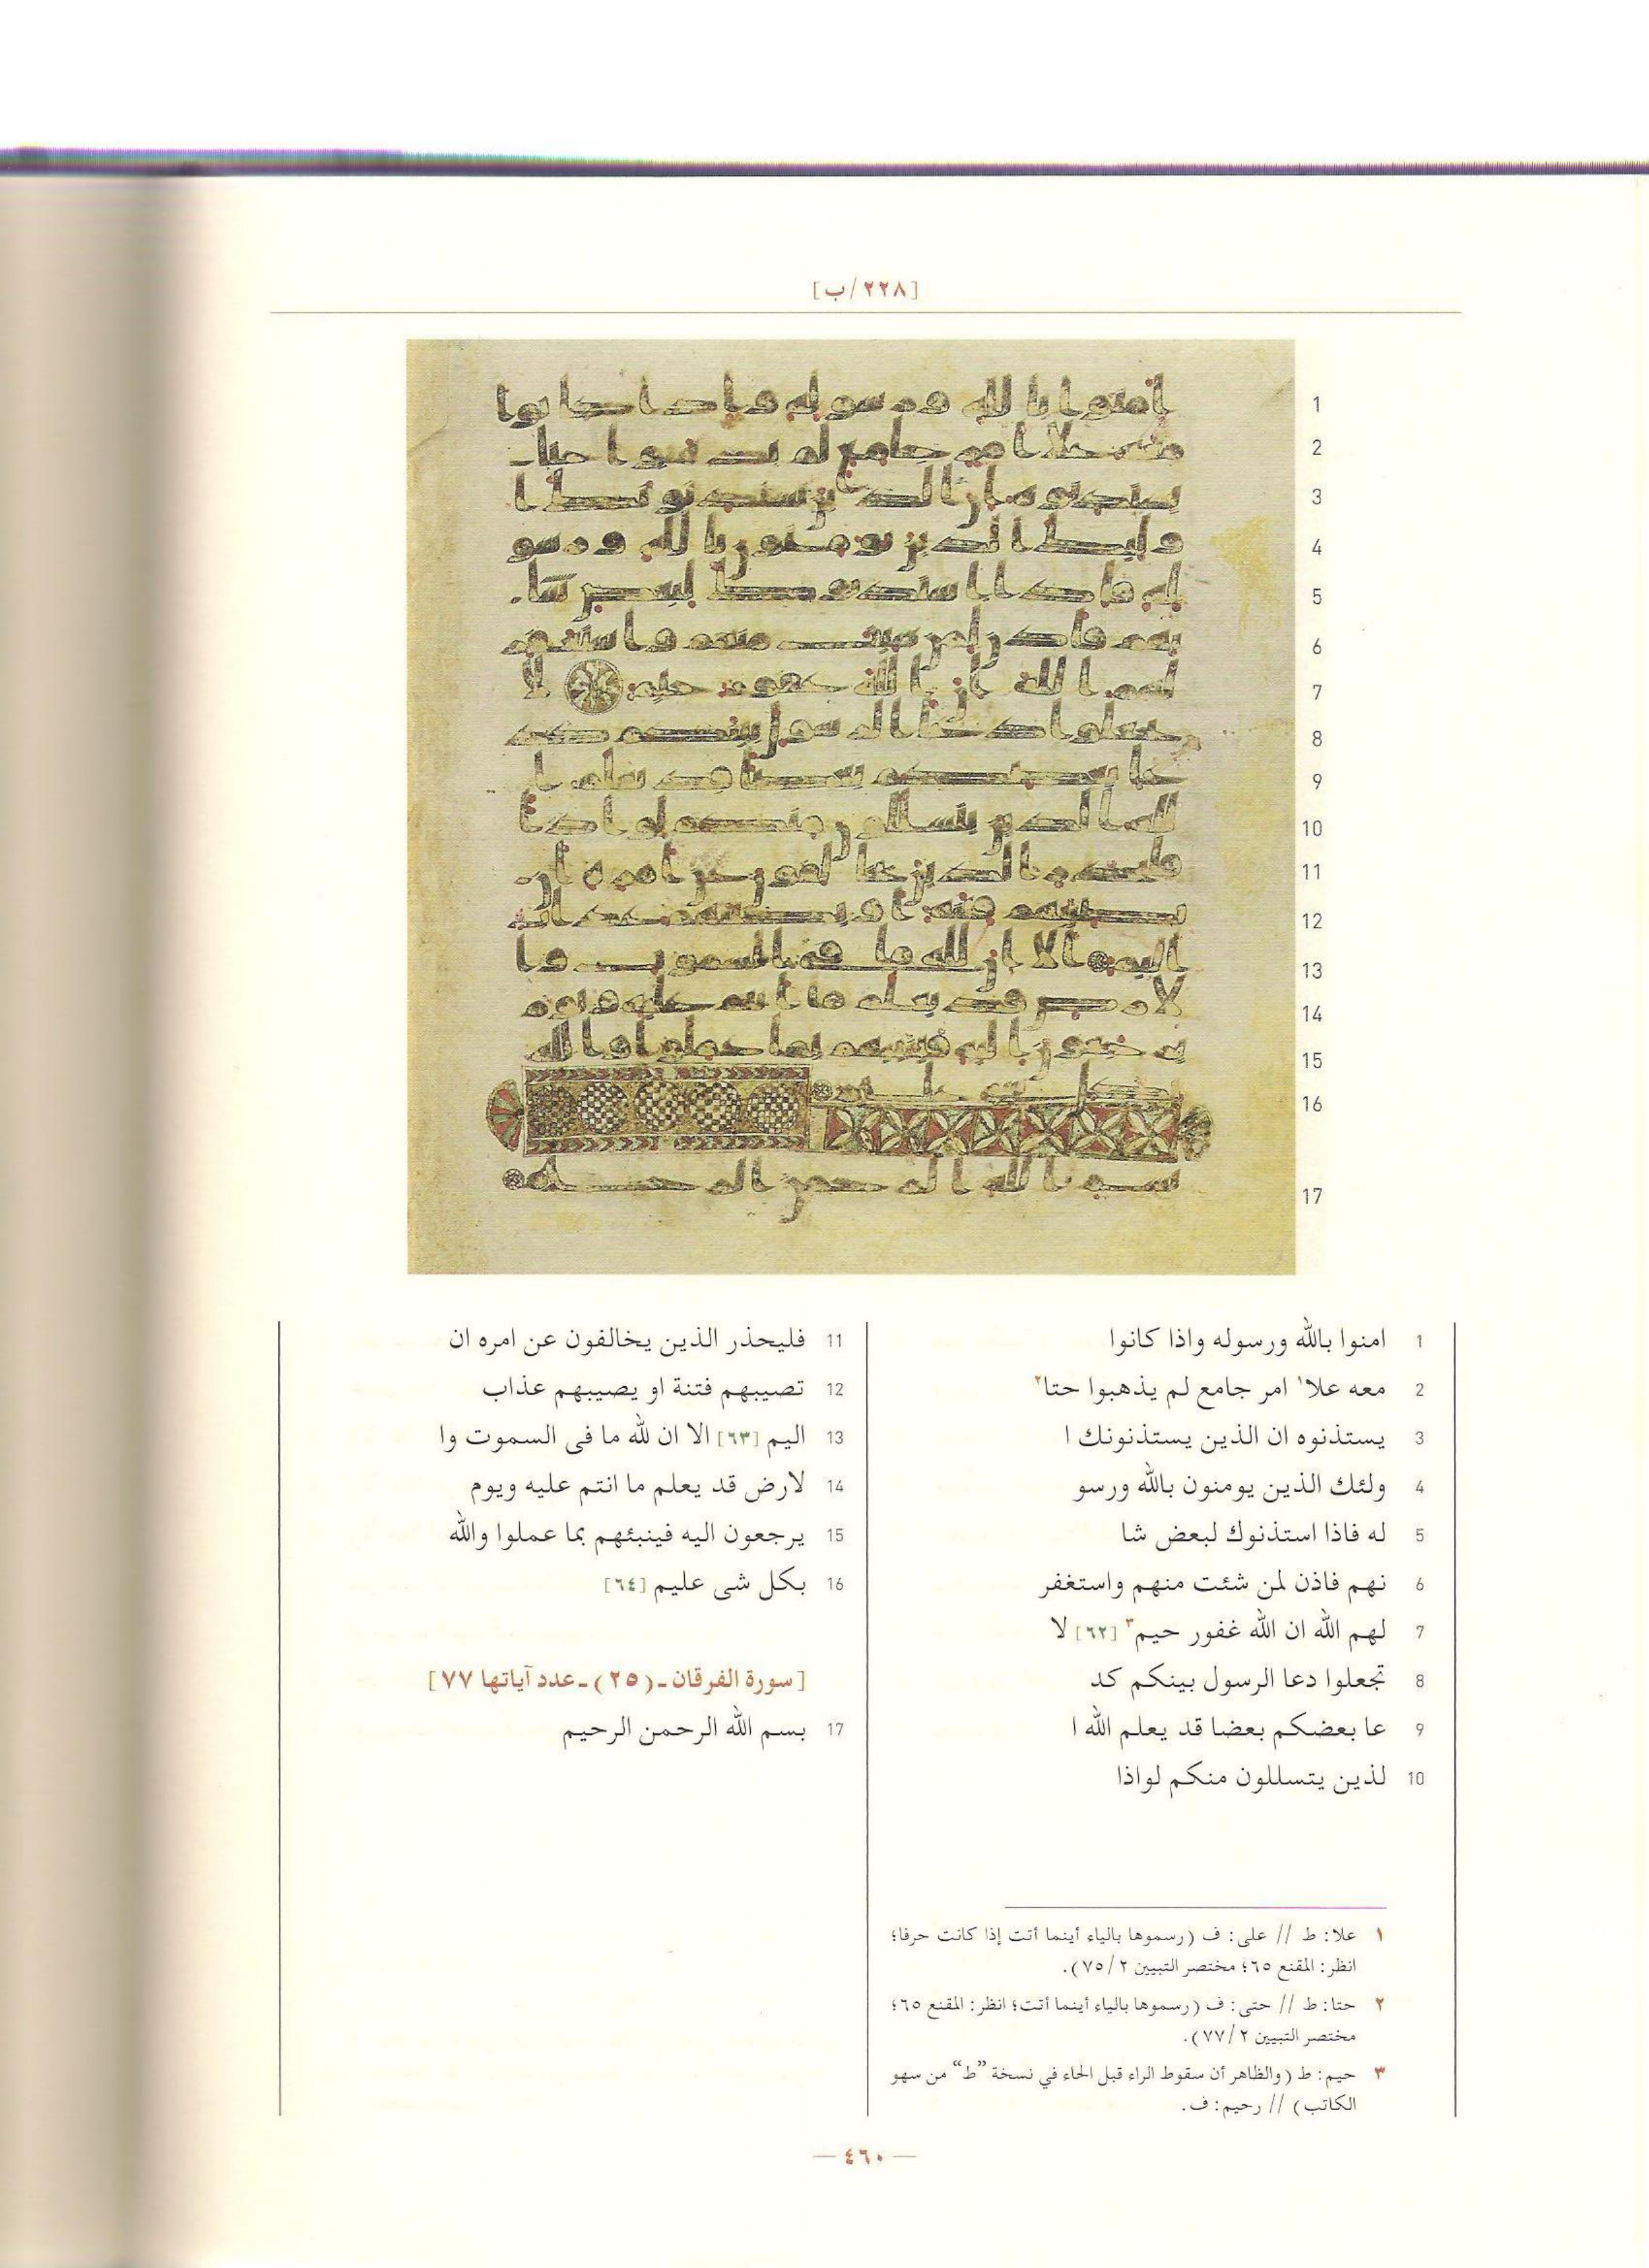 [٢٢٨/ب]
1 امنوا بالله ورسوله واذا كانوا
2 معه علا١ امر جامع لم يذهبوا حتا٢
3 يستذنوه ان الذين يستذنونك ا
4 ولئك الذين يومنون بالله ورسو
5 له فاذا استذنوك لبعض شا
6 نهم فاذن لمن شئت منهم واستغفر
7 لهم الله ان الله غفور حيم٣ [٦٢] لا
8 تجعلوا دعا الرسول بينكم كد
9 عا بعضكم بعضا قد يعلم الله ا
10 لذين يتسللون منكم لواذا
11 فليحذر الذين يخالفون عن امره ان
12 تصيبهم فتنة او يصيبهم عذاب
13 اليم [٦٣] الا ان لله ما فى السموت وا
14 لارض قد يعلم ما انتم عليه ويوم
15 يرجعون اليه فينبئهم بما عملوا والله
16 بكل شى عليم [٦٤]
[سورة الفرقان ـ (٢٥) ـ عدد آياتها ٧٧]
17 بسم الله الرحمن الرحيم
١ علا: ط // على: ف (رسموها بالياء أينما أتت إذا كانت حرفا؛
انظر: المقنع ٦٥؛ مختصر التبيين ٢/ ٧٥).
٢ حتا: ط // حتى: ف (رسموها بالياء أينما أتت؛ انظر: المقنع ٦٥؛
مختصر التبيين ٢/ ٧٧).
٣ حيم: ط (والظاهر أن سقوط الراء قبل الحاء في نسخة ”ط“ من سهو
الكاتب) // رحيم: ف.
— ٤٦٠ —